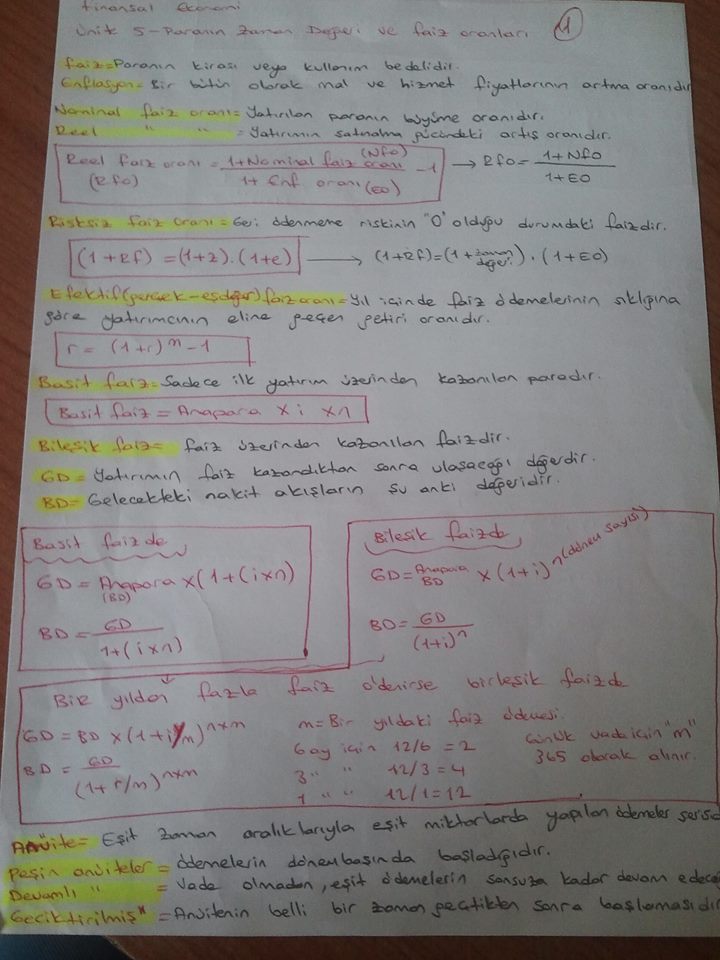 Finansal Ekonomi
Ünite 5-Paranın Zaman Değeri ve faiz oranları 1
faiz=Paranın kirası veya kullanım bedelidir.
Enflasyon=Bir bütün olarak mal ve hizmet fiyatlarının artma oranıdır
Nominal faiz oranı=Yatırılan paranın büyüme oranıdır.
Reel " " =Yatırımın satınalma gücündeki artış oranıdır.
Reel faiz oranı (Rfo) = 1+Nominal faiz oranı (Nfo) / 1+ Enf oranı (EO) -1 → Rfo= 1+Nfo / 1+EO
Risksiz faiz oranı=Geri ödenmeme riskinin "0" olduğu durumdaki faizdir.
(1+Rf) =(1+z).(1+e) → (1+Rf)=(1+zaman değeri).(1+EO)
Efektif(gerçek-eşdeğer)faiz oranı=Yıl içinde faiz ödemelerinin sıklığına
göre yatırımcının eline geçen getiri oranıdır.
r = (1+r)^m -1
Basit faiz=Sadece ilk yatırım üzerinden kazanılan paradır.
Basit faiz = Anapara x i x n
Bileşik faiz= faiz üzerinden kazanılan faizdir.
GD= Yatırımın faiz kazandıktan sonra ulaşacağı değerdir.
BD= Gelecekteki nakit akışların şu anki değeridir.
Basit faizde
GD= Anapara (BD) x(1+(ixn)
BD= GD / 1+(ixn)
Bileşik faizde
GD= Anapara BD x (1+i)^n(dönem sayısı)
BD= GD / (1+i)^n
Bir yıldan fazla faiz ödenirse birleşik faizde
GD= BD x(1+i/m)^nxm
BD= GD / (1+r/m)^nxm
m=Bir yıldaki faiz ödemesi.
6 ay için 12/6 = 2
3 " " 12/3=4
1 " " 12/1=12
Günlük vade için "m"
365 olarak alınır.
Anüite= Eşit zaman aralıklarıyla eşit miktarlarda yapılan ödemeler serisid
Peşin anüiteler= ödemelerin dönembaşında başladığıdır.
Devamlı " = Vade olmadan, eşit ödemelerin sonsuza kadar devam edeceği
Geciktirilmiş" = Anüitenin belli bir zaman geçtikten sonra başlamasıdır